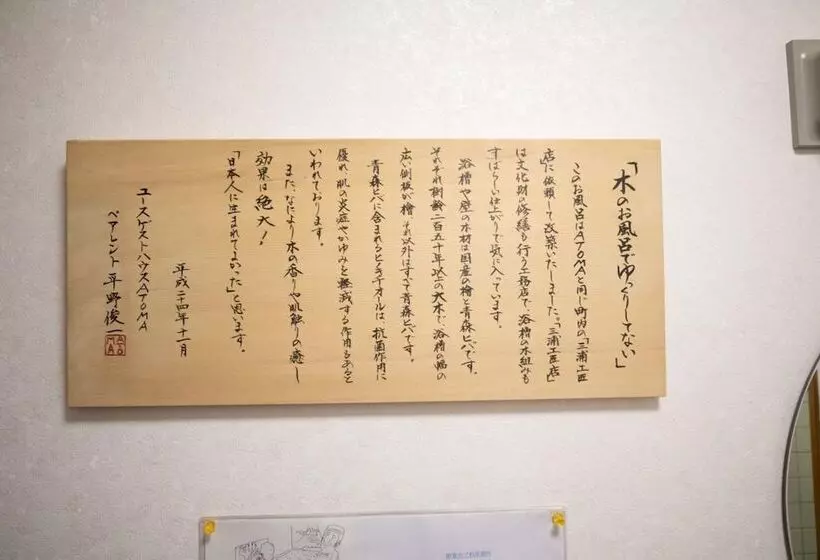 「木のお風呂でゆっくりしてない」
このお風呂はATOMAと同じ町内の「三浦工匠
店」に依頼して改築いたしました。「三浦工匠店」
は文化財の修繕も行う工務店で、浴槽の木組みも
すばらしい仕上がりで気に入っています。
浴槽や壁の木材は国産の檜と青森ヒバです。
それぞれ樹齢二百五十年以上の大木で、浴槽の幅の
広い側板が檜、それ以外はすべて青森ヒバです。
青森ヒバに含まれるヒノキチオールは、抗菌作用に
優れ、肌の炎症やかゆみを軽減する作用もあると
いわれております。
また、なにより木の香りや肌触りの癒し
効果は絶大!
「日本人に生まれてよかった」と思います。
平成二十四年十一月
ユースゲストハウスATOMA
ペアレント 平野俊一
ATO
MA